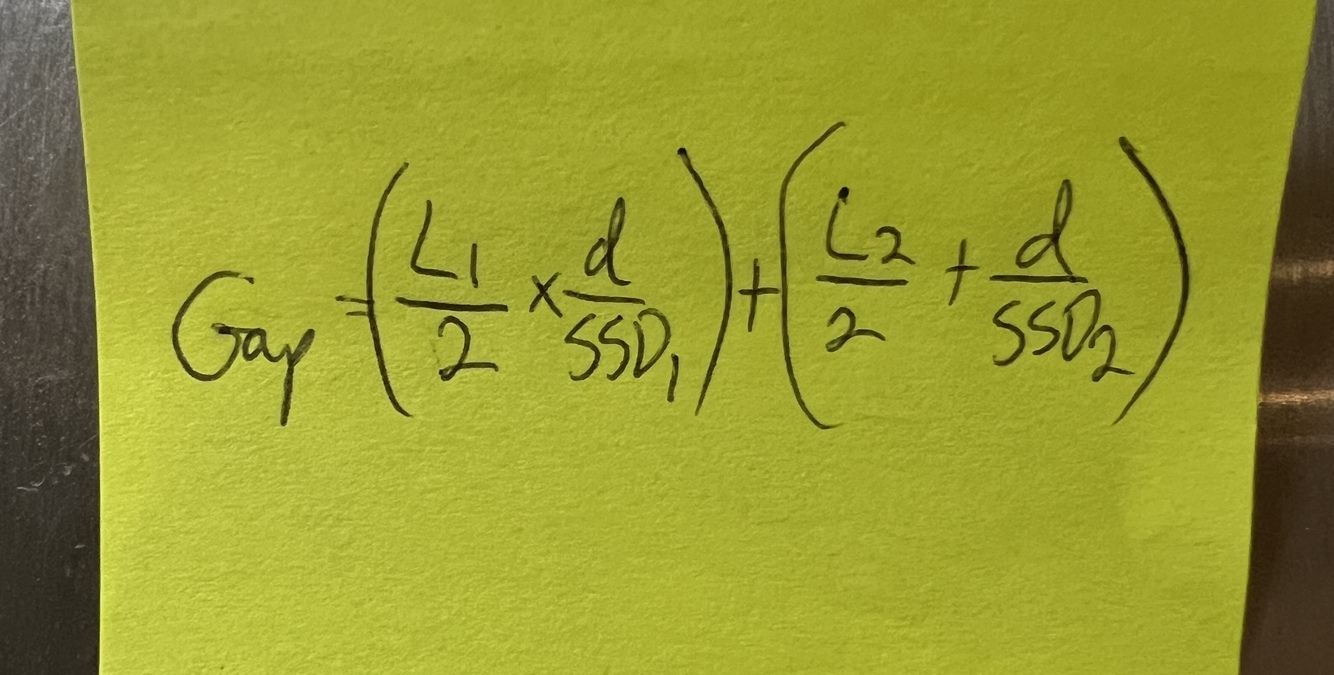 Gap = (L₁/2 × d/SSD₁) + (L₂/2 + d/SSD₂)